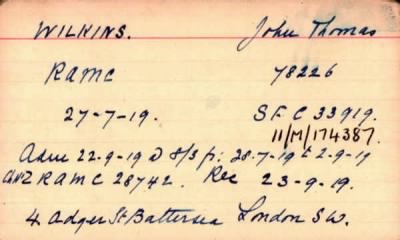 WILKINS. John Thomas
RAMC 78226
27-7-19. SFC 33919.
11/M/174387.
22-9-19 @ 8/3 28-7-19 2-9-19
RAMC 28742. Rec 23-9-19.
4 Adger St Battersea London SW.